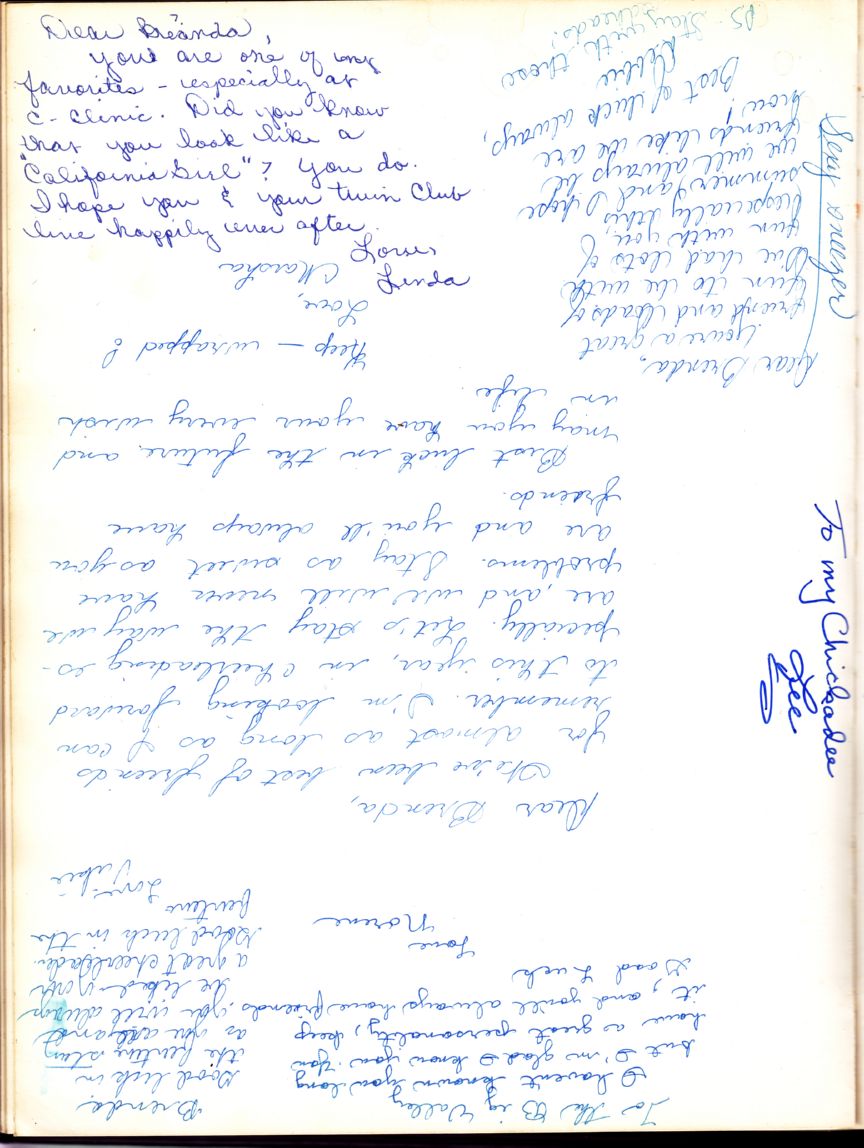 Dear Breanda,
You are one of my
favorites - especially at
C-Clinic. Did you know
that you look like a
"California Girl"? You do.
I hope you & your twin Club
live happily ever after.
Loves
Linda
Sexy sneezer
Dear Brenda,
You're a great
friend and loads of
fun to be with
We had lots of
fun with you,
(especially this
summer) and I hope
we will always be
friends like we are
now!
Best of luck always,
Debbie
PS. Stay with those
threads!
To my Chickadee
Lee
Dear Brenda,
We've been best of friends
for almost as long as I can
remember. I'm looking forward
to this year, in cheerleading es-
pecially. Let's stay the way we
are, and we will never have
problems. Stay as sweet as you
are and you'll always have
friends.
Best luck in the future, and
may you have your every wish
in life.
Keep - wrapped!
Love,
Marsha
To the Big Valley
I haven't known you long
but I'm glad I know you. You
have a great personality, keep
it, and you'll always have friends.
Good Luck
Love
Norene
Brenda
Good luck in
the future stay
as you are and
you will always
be liked. Your
a great cheerleader.
Good luck in the
future
Love
Julie